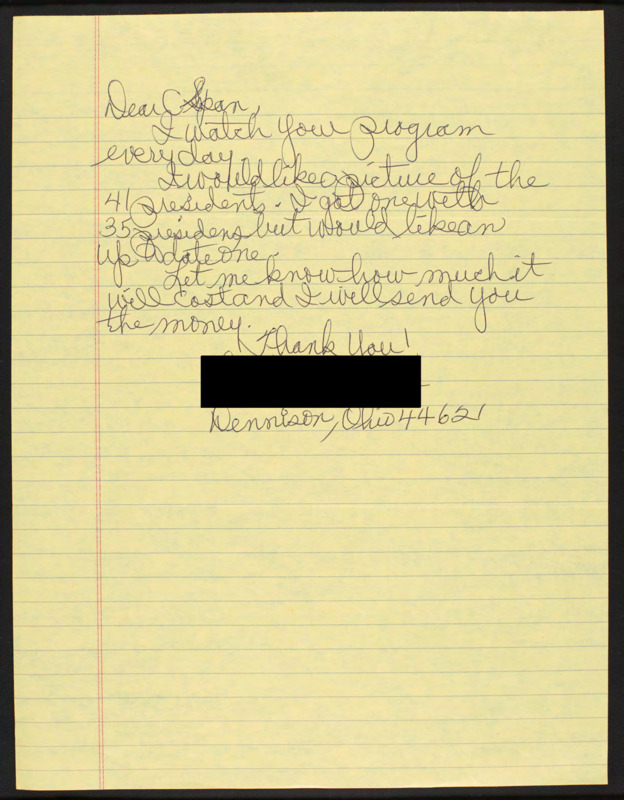 Dear C Span,
I watch your program
everyday.
I would like a picture of the
41 presidents. I got one with
35 presidens but would like an
up to date one.
Let me know how much it
will cost and I will send you
the money.
Thank You!
Dennison, Ohio 44621